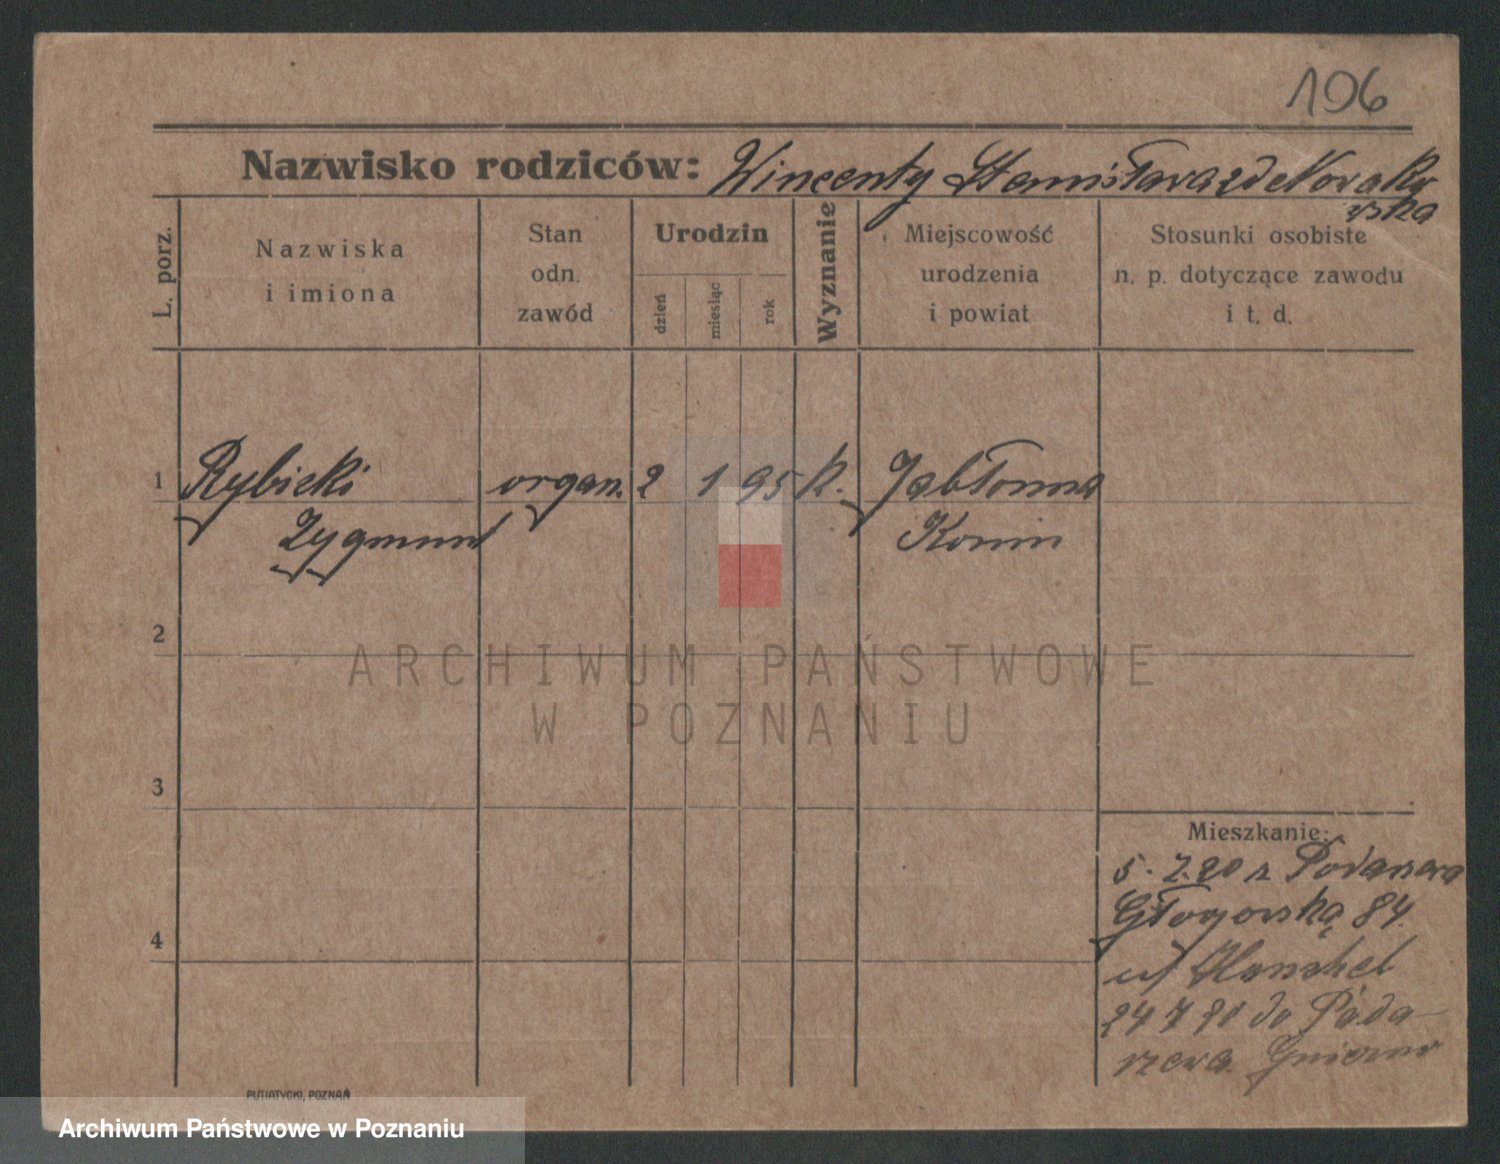 106
Nazwisko rodziców: Wincenty Stanisława zd Nowako
wska
L. porz.
Nazwiska
i imiona
Stan
odn.
zawód
Urodzin
dzień
miesiąc
rok
Wyznanie
Miejscowość
urodzenia
i powiat
Stosunki osobiste
n. p. dotyczące zawodu
i t. d.
1 Rybicki organ. 2 1 95 k. Jabłonna
Zygmunt Konin
2
ARCHIWUM PAŃSTWOWE
W POZNANIU
3
Mieszkanie:
5. 7. 20 z
Głogowska 84.
4
24 7 20 do
Gniezno
PUTIATYCKI, POZNAŃ
Archiwum Państwowe w Poznaniu